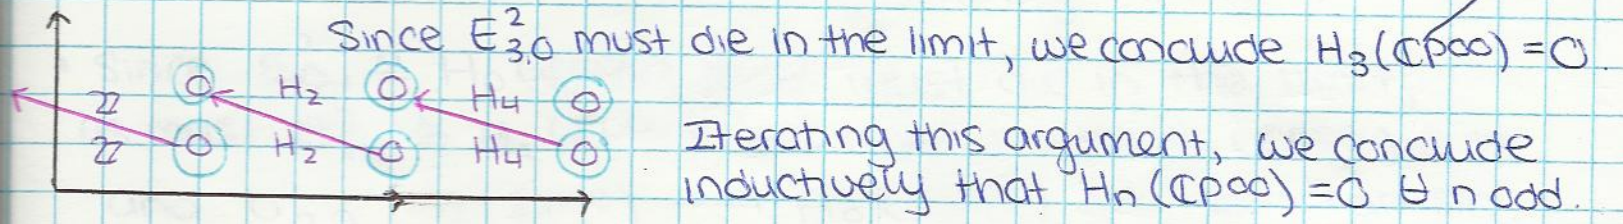 Since E²₃,₀ must die in the limit, we conclude H₃(ℂP∞) = 0.
ℤ 0 H₂ 0 H₄ 0
ℤ 0 H₂ 0 H₄ 0
Iterating this argument, we conclude
inductively that Hₙ(ℂP∞) = 0 ∀ n odd.